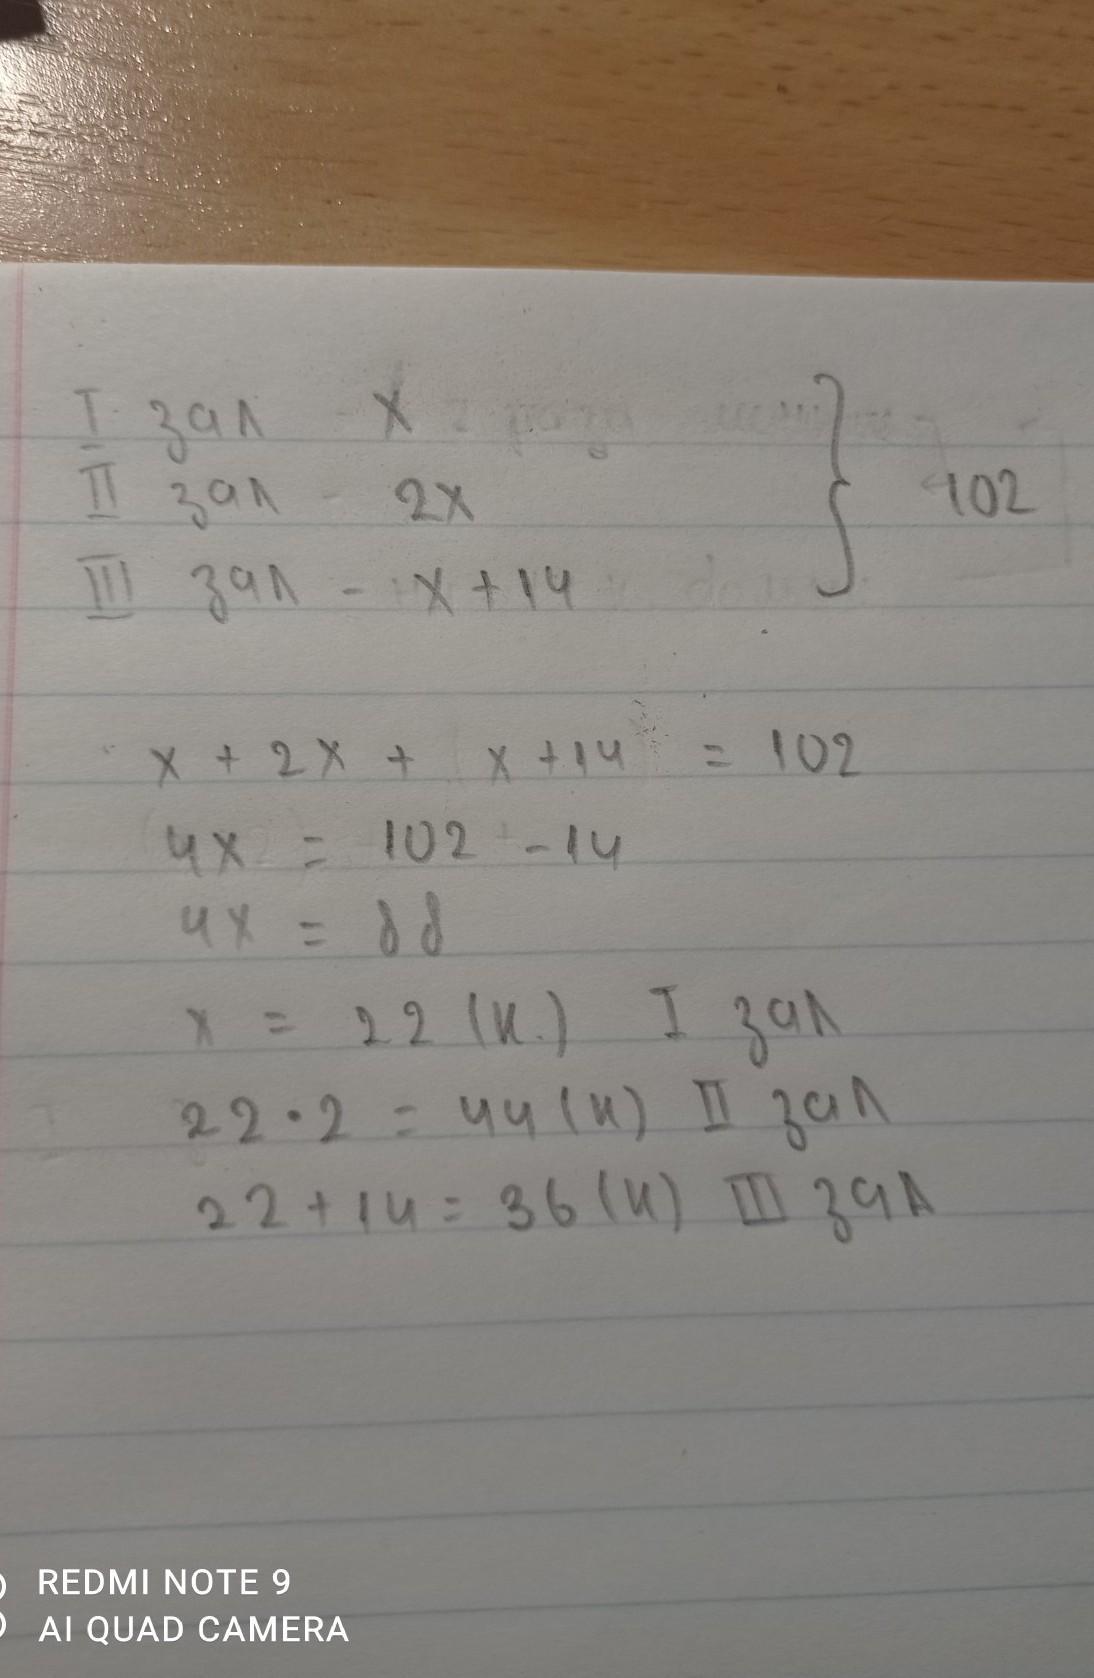 I зал - x
II зал - 2x
III зал - x+14
} 102
x + 2x + x+14 = 102
4x = 102 - 14
4x = 88
x = 22 (к.) I зал
22 • 2 = 44 (к) II зал
22 + 14 = 36 (к) III зал
REDMI NOTE 9
AI QUAD CAMERA